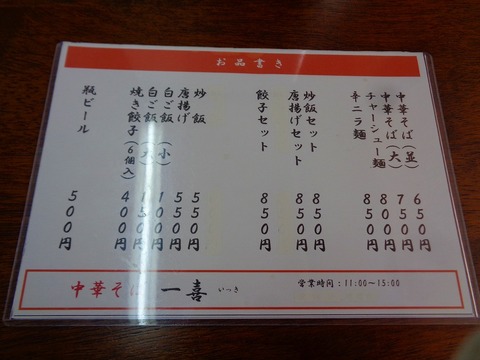 お品書き
中華そば(並) 650円
中華そば(大) 750円
チャーシュー麺 850円
辛ニラ麺 800円
炒飯セット 850円
唐揚げセット 850円
餃子セット 850円
炒飯 550円
唐揚げ 550円
白ご飯(小) 100円
白ご飯(大) 150円
焼き餃子(6個入) 400円
瓶ビール 500円
中華そば 一喜 いっき
営業時間:11:00~15:00